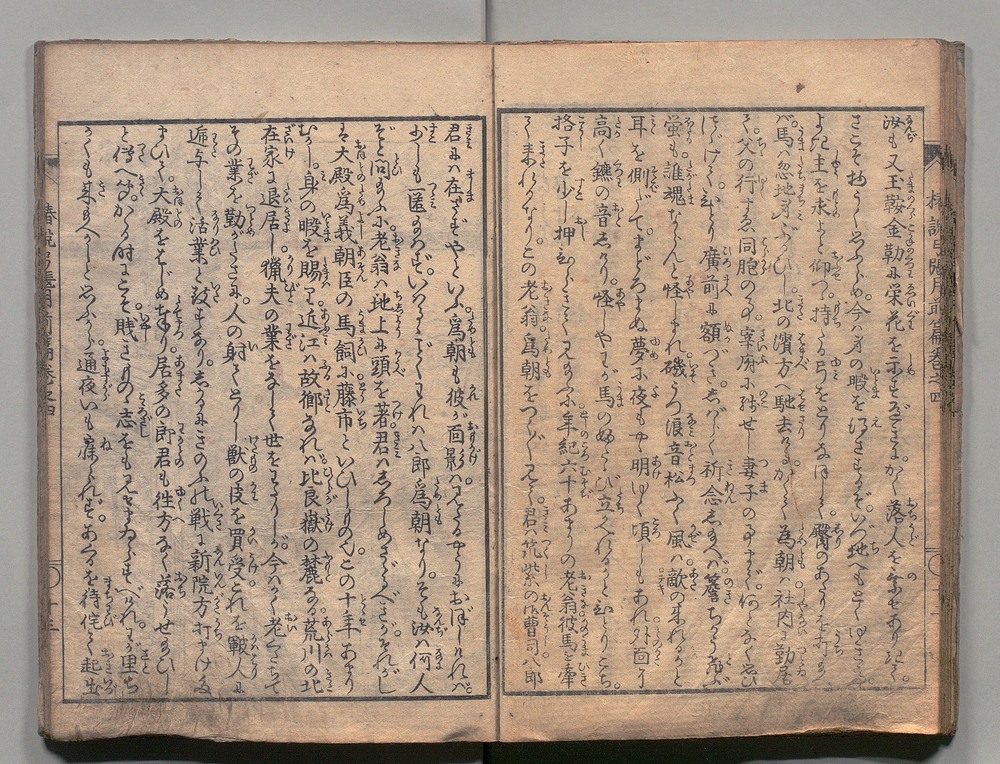 汝も又王鞍金勒に栄花を示すべきに。かく落人を乗せありきて。
さこそ物うく思ふらめ。今ハ身の暇を得さするぞ。いづ地へもとくゆきて
よき主を求よと仰つ。持たる弓をとりなほして。臀のあたりを打給へ
バ。馬ハ忽地身ぶるひし。北の濱方へ馳去けり。かくて為朝ハ社内に勤居
て。父の行すゑ同胞の事。宰府に残せし妻子の事まで。何となく思ひ
つゞけて。ひとり廣前に額づき。しばらく祈念し給へバ。簷ちかう飛ぶ
蛍も。誰魂ならんと怪しまれ。磯うつ浪音松ふく風ハ。敵の来れるかと
耳を側てまどろまぬ。夢に夜もやゝ明ゆく頃しもあれ。外面に
高く鑣の音しけり。怪しやわが馬のふたゝび立かへれるかとひとりごち。
格子を少し押ひらきて見給ふに。年紀六十あまりの老翁。彼馬を牽
て来れるなり。この老翁為朝をつく〴〵と見て。君ハ筑紫の御曹司八郎
君にハ在さずやといふ。為朝も彼が面影ハ見たるやうにおぼしければ。
少しも匿給ハず。いかにもわれハ八郎為朝なり。そも汝ハ何人
ぞと問給ふに。老翁ハ地上に頭を著。君ハしろしめさゞるべきが。それがし
は大殿為義朝臣の馬飼に。藤市といひしものなり。この十年あまり
むかし。身の暇を賜りて。近江ハ故郷なれバ。比良嶽の麓なる荒川の北
在家に退居し。猟夫の業をなして世をわたりしが。今ハかく老くちて
その業を勤がたさに。人の射てとりし獣の皮を買受。これを鞁人に
逓与して活業と致すなり。しかるにこのふれ戦に。新院方打まけ給
ひて。大殿をはじめ奉り。居多の郎君も往方なく落うせ給ひし
と傳へ聞。かゝる時にこそ賎きものゝ志をも見せまゐらすべけれ。里ちか
くも来まさんかしと思ふから。通夜いも寐られず。あかるを待侘て起出
椿説弓張月前篇巻之四
椿説弓張月前篇巻之四
十三